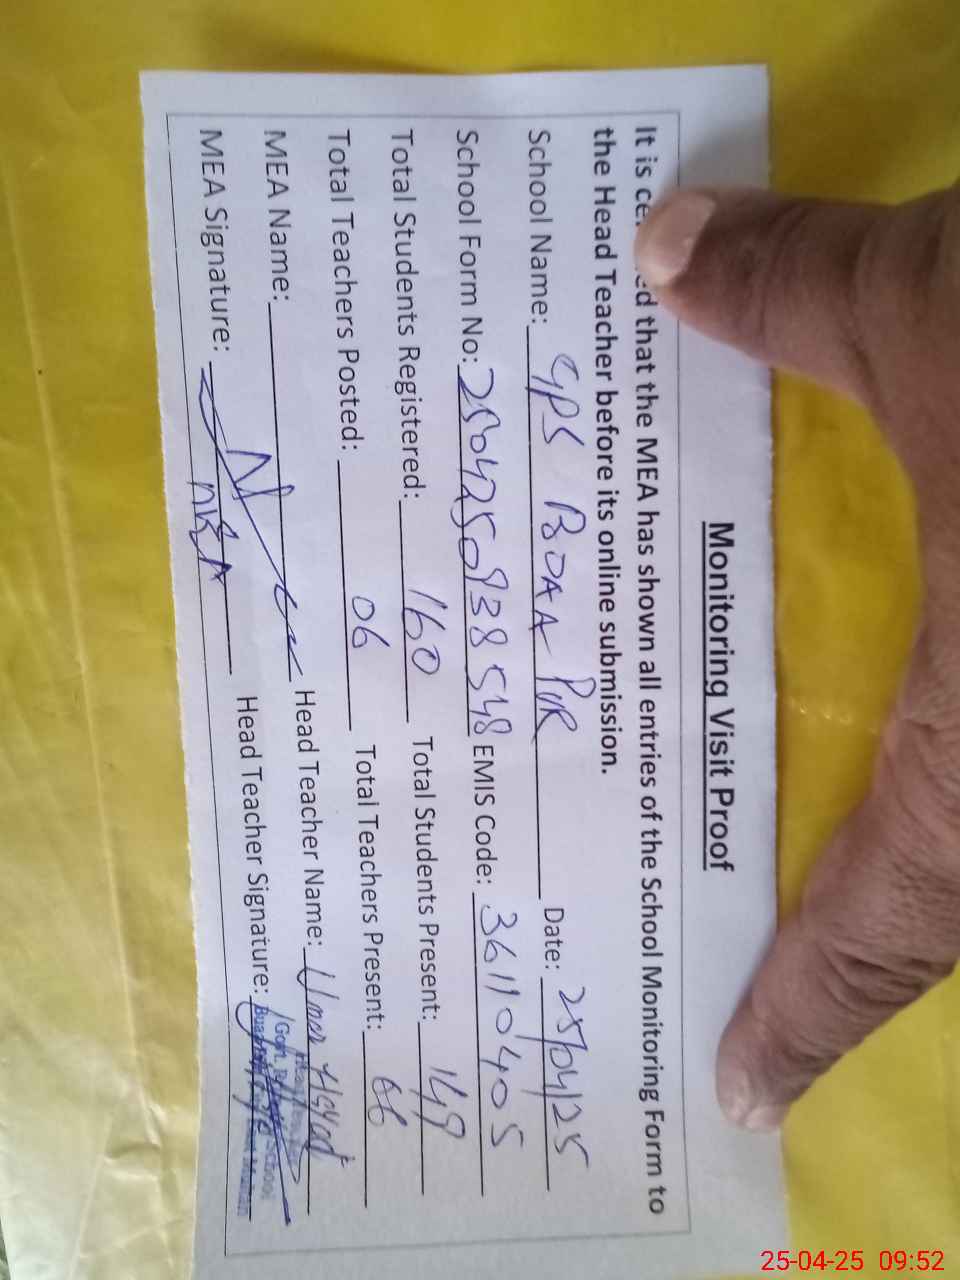 Monitoring Visit Proof
It is ce ed that the MEA has shown all entries of the School Monitoring Form to
the Head Teacher before its online submission.
School Name: GPS BOAA PUR Date: 25/04/25
School Form No: 250425 EMIS Code: 36110405
Total Students Registered: 160 Total Students Present: 149
Total Teachers Posted: 06 Total Teachers Present: 06
MEA Name: Head Teacher Name: Umer Hayat
MEA Signature: Head Teacher Signature:
Govt. School
25-04-25 09:52